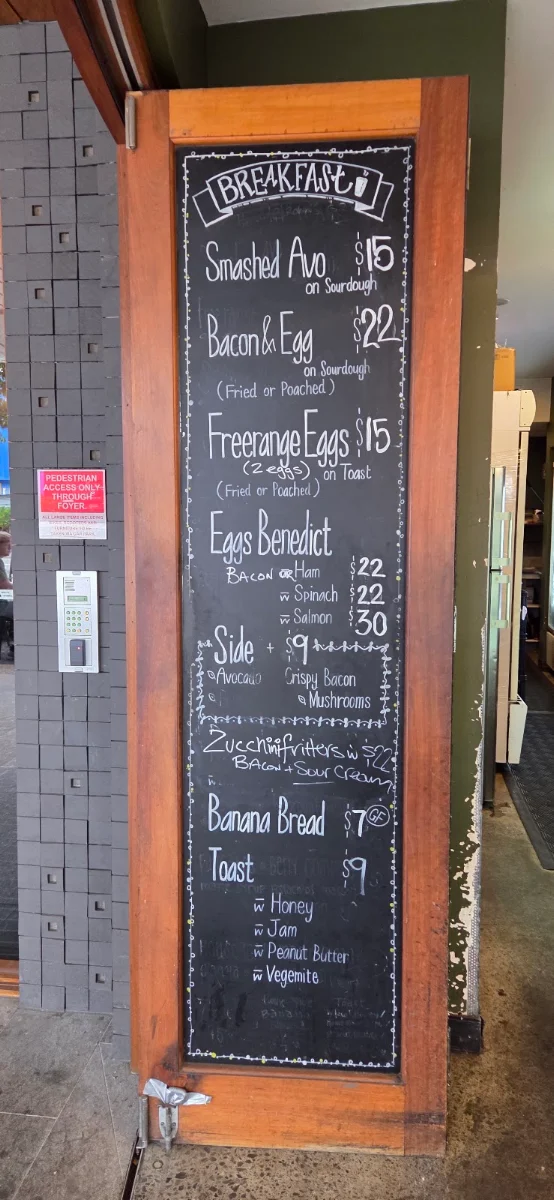 BREAKFAST
Smashed Avo $15
on Sourdough
Bacon & Egg $22
on Sourdough
(Fried or Poached)
Freerange Eggs $15
(2 eggs) on Toast
(Fried or Poached)
Eggs Benedict
BACON OR Ham $22
w Spinach $22
w Salmon $30
Side + $9
Avocado Crispy Bacon
Mushrooms
Zucchini fritters w $22
BACON + Sour Cream
Banana Bread $7 GF
Toast $9
w Honey
w Jam
w Peanut Butter
w Vegemite
PEDESTRIAN
ACCESS ONLY
THROUGH
FOYER.